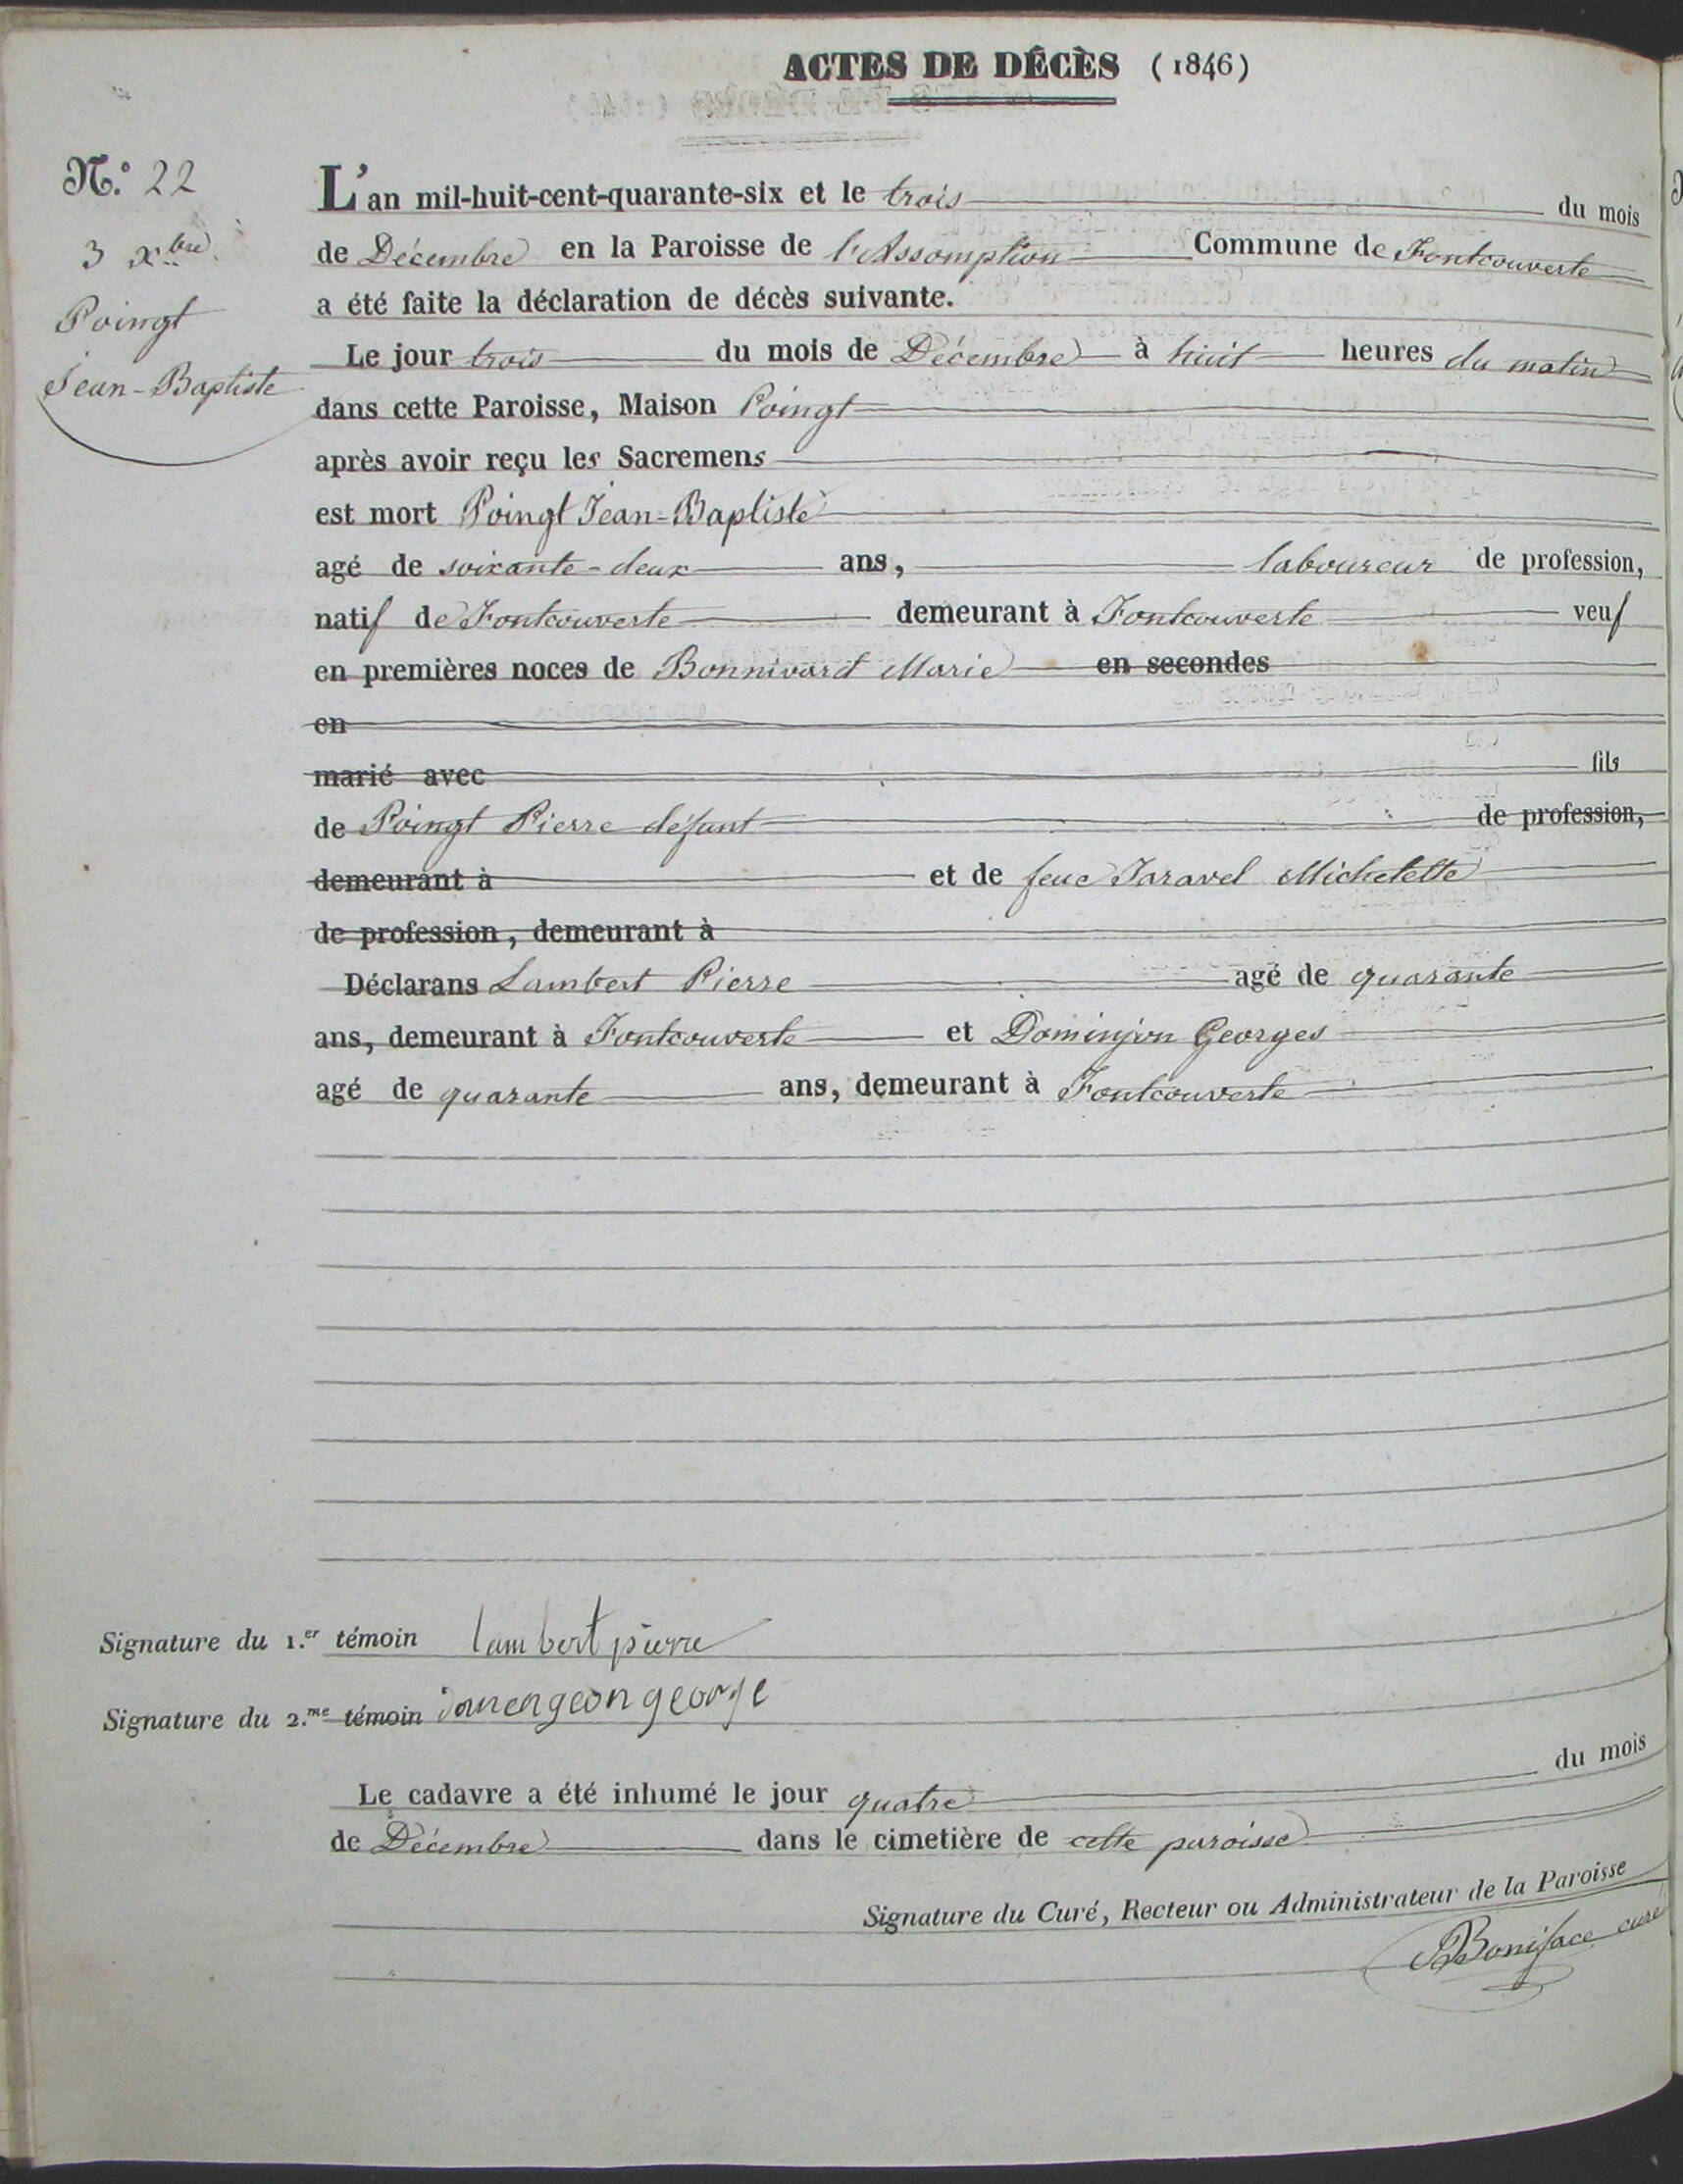 ACTES DE DÉCÈS (1846)
N.° 22
3 xbre
Poingt
Jean-Baptiste
L'an mil-huit-cent-quarante-six et le trois du mois
de Décembre en la Paroisse de l'Assomption Commune de Fontcouverte
a été faite la déclaration de décès suivante.
Le jour trois du mois de Décembre à huit heures du matin
dans cette Paroisse, Maison Poingt
après avoir reçu les Sacremens
est mort Poingt Jean-Baptiste
agé de soixante-deux ans, laboureur de profession,
natif de Fontcouverte demeurant à Fontcouverte veuf
en premières noces de Bonnivard Marie en secondes
en
marié avec fils
de Poingt Pierre défunt de profession,
demeurant à et de feue Taravel Michelette
de profession, demeurant à
Déclarans Lambert Pierre agé de quarante
ans, demeurant à Fontcouverte et Dominjon Georges
agé de quarante ans, demeurant à Fontcouverte
Signature du 1.er témoin lambert pierre
Signature du 2.me témoin domengeon george
Le cadavre a été inhumé le jour quatre du mois
de Décembre dans le cimetière de cette paroisse
Signature du Curé, Recteur ou Administrateur de la Paroisse
Boniface curé